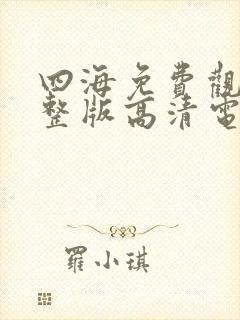 四海免費觀
整版高清電
羅小琪